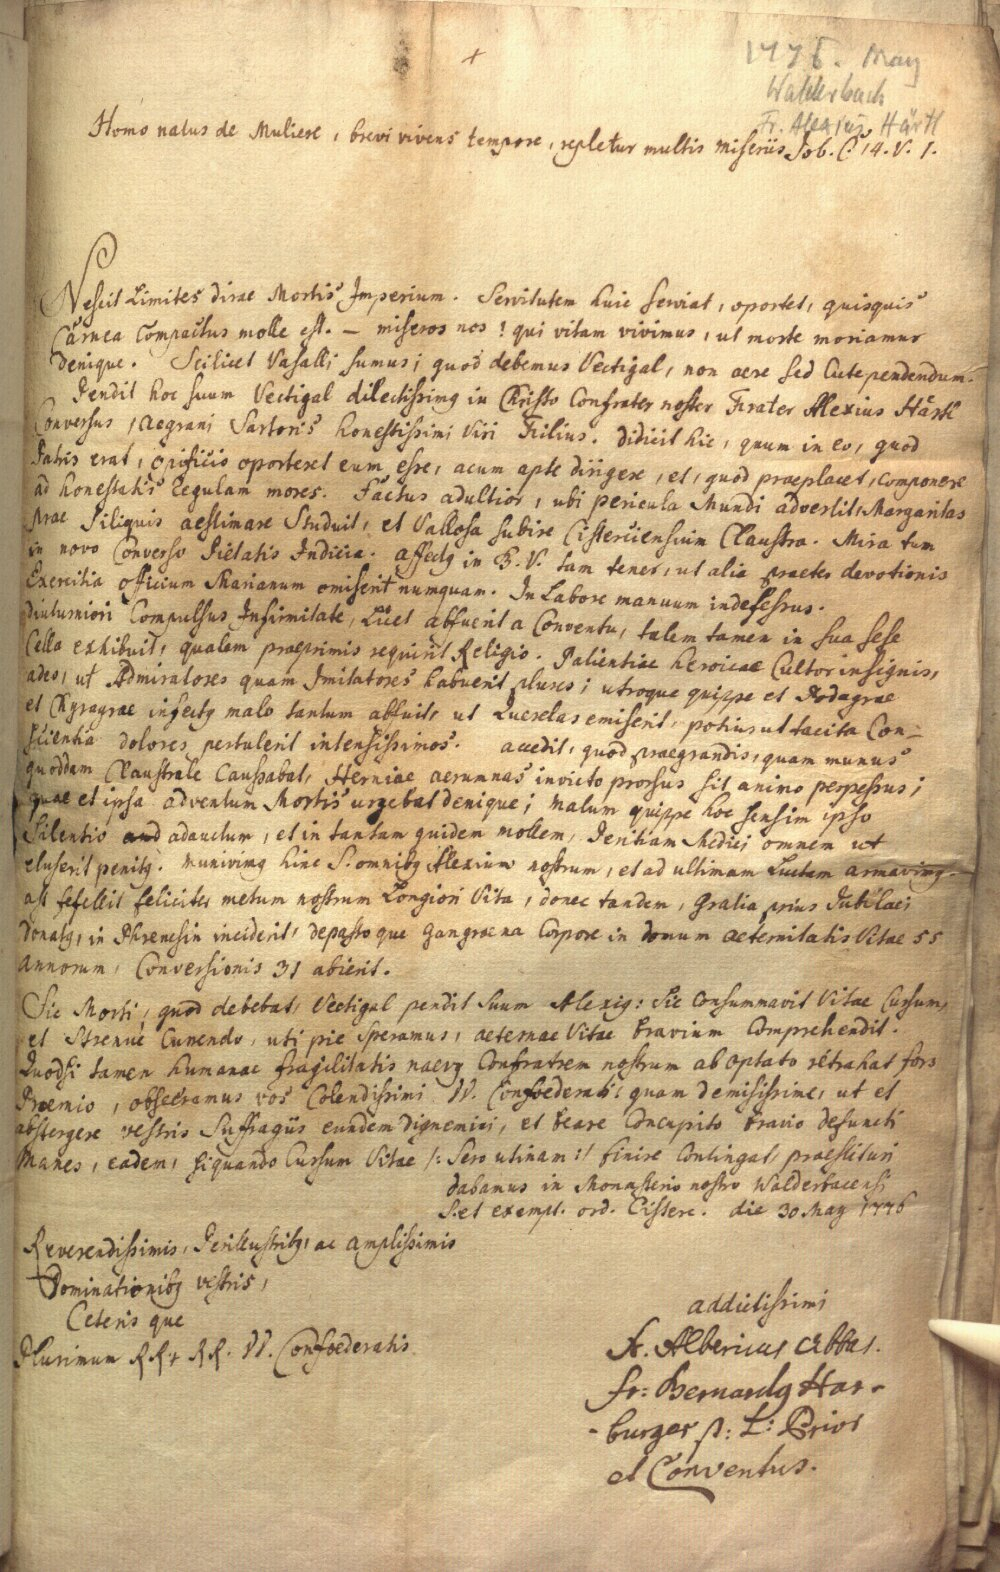 +
1776. May
Walderbach
Fr. Alexius Härtl
Homo natus de Muliere, brevi vivens tempore, repletur multis miseriis Job. C. 14. V. 1.
Nescit Limites dirae Mortis Imperium. Servitutem huic serviat, oportet, quisquis
Carnea Compactus mole est. – miseros nos! qui vitam vivimus, ut morte moriamur
denique. Scilicet Vasalli sumus; quod debemus Vectigal, non aere sed Cute pendendum.
Pendit hoc suum Vectigal dilectissimq in Christo Confrater noster Frater Alexius Härtl
Conversus, Aegrani Sartoris honestissimi Viri Filius. Didicit hic, quum in eo, quod
Patris erat, opificio oporteret eum esse, acum apte dirigere, et, quod praeplacet, componere
ad honestatis Regulam mores. Factus adultior, ubi pericula Mundi advertit, Margaritas
prae Siliquis aestimare Studuit, et Vallosa subire Cisterciensium Claustra. Mira tum
in novo Converso Pietatis Indicia. affectq in B. V. tam tener, ut alia praeter devotionis
Exercitia officium Marianum omiserit numquam. In Labore manuum indefessus.
diuturniori Compulsus Infirmitate, Licet abfuerit a Conventu, talem tamen in sua sese
Cella exhibuit, qualem praeprimis requirit Religio. Patientiae heroicae Cultor insignis,
adeo, ut Admiratores quam Imitatores habuerit plures; utroque quippe et Podagrae
et Chyragrae infectq malo tantum abfuit, ut Querelas emiserit, potius ut tacita Con=
scientia dolores pertulerit intensissimos. accedit, quod praegrandis, quam munus
quoddam Claustrale Caussabat, Herniae aerumnas invicto prorsus sit animo perpessus;
quae et ipsa adventum Mortis urgebat denique; malum quippe hoc sensim ipso
Silentio adauctum, et in tantam quidem mollem, Peritiam Medici omnem ut
eluserit penitq. munivimq hinc S. omnibq Alexium nostrum, et ad ultimam Luctam armavimq.
ast fefellit feliciter metum nostrum Longiori Vita, donec tandem, Gratia prius Jubilaei
donatq, in Phrenesin inciderit, depasto que Gangraena Corpore in domum aeternitatis Vitae 55
annorum, Conversionis 31 abierit.
Sic Morti, quod debebat, Vectigal pendit suum Alexiq: Sic Consummavit Vitae Cursum,
et Strenue Currendo, uti pie Speramus, aeternae Vitae bravium Comprehendit.
Quodsi tamen humanae fragilitatis naevq Confratrem nostrum ab optato retrahat fors
Praemio, obsecramus vos Colendissimi VV. Confoederati: quam demisissime, ut et
abstergere vestris Suffragiis eundem dignemini, et beare Concupito bravio defuncti
Manes, eadem, siquando Cursum Vitae /: Sero utinam :/ finire Contingat, praestituri
dabamus in Monasterio nostro Walderbacensi
S. et exempt. ord. Cisterc. die 30 May 1776
Reverendissimis, Perillustribq, ac amplissimis
Dominationibq vestris,
Ceteris que
Plurimum RR. RR. VV. Confoederatis.
addictissimi
F. Albericus Abbas.
fr: Bernardq Har-
- burger p: t: Prior
et Conventus.